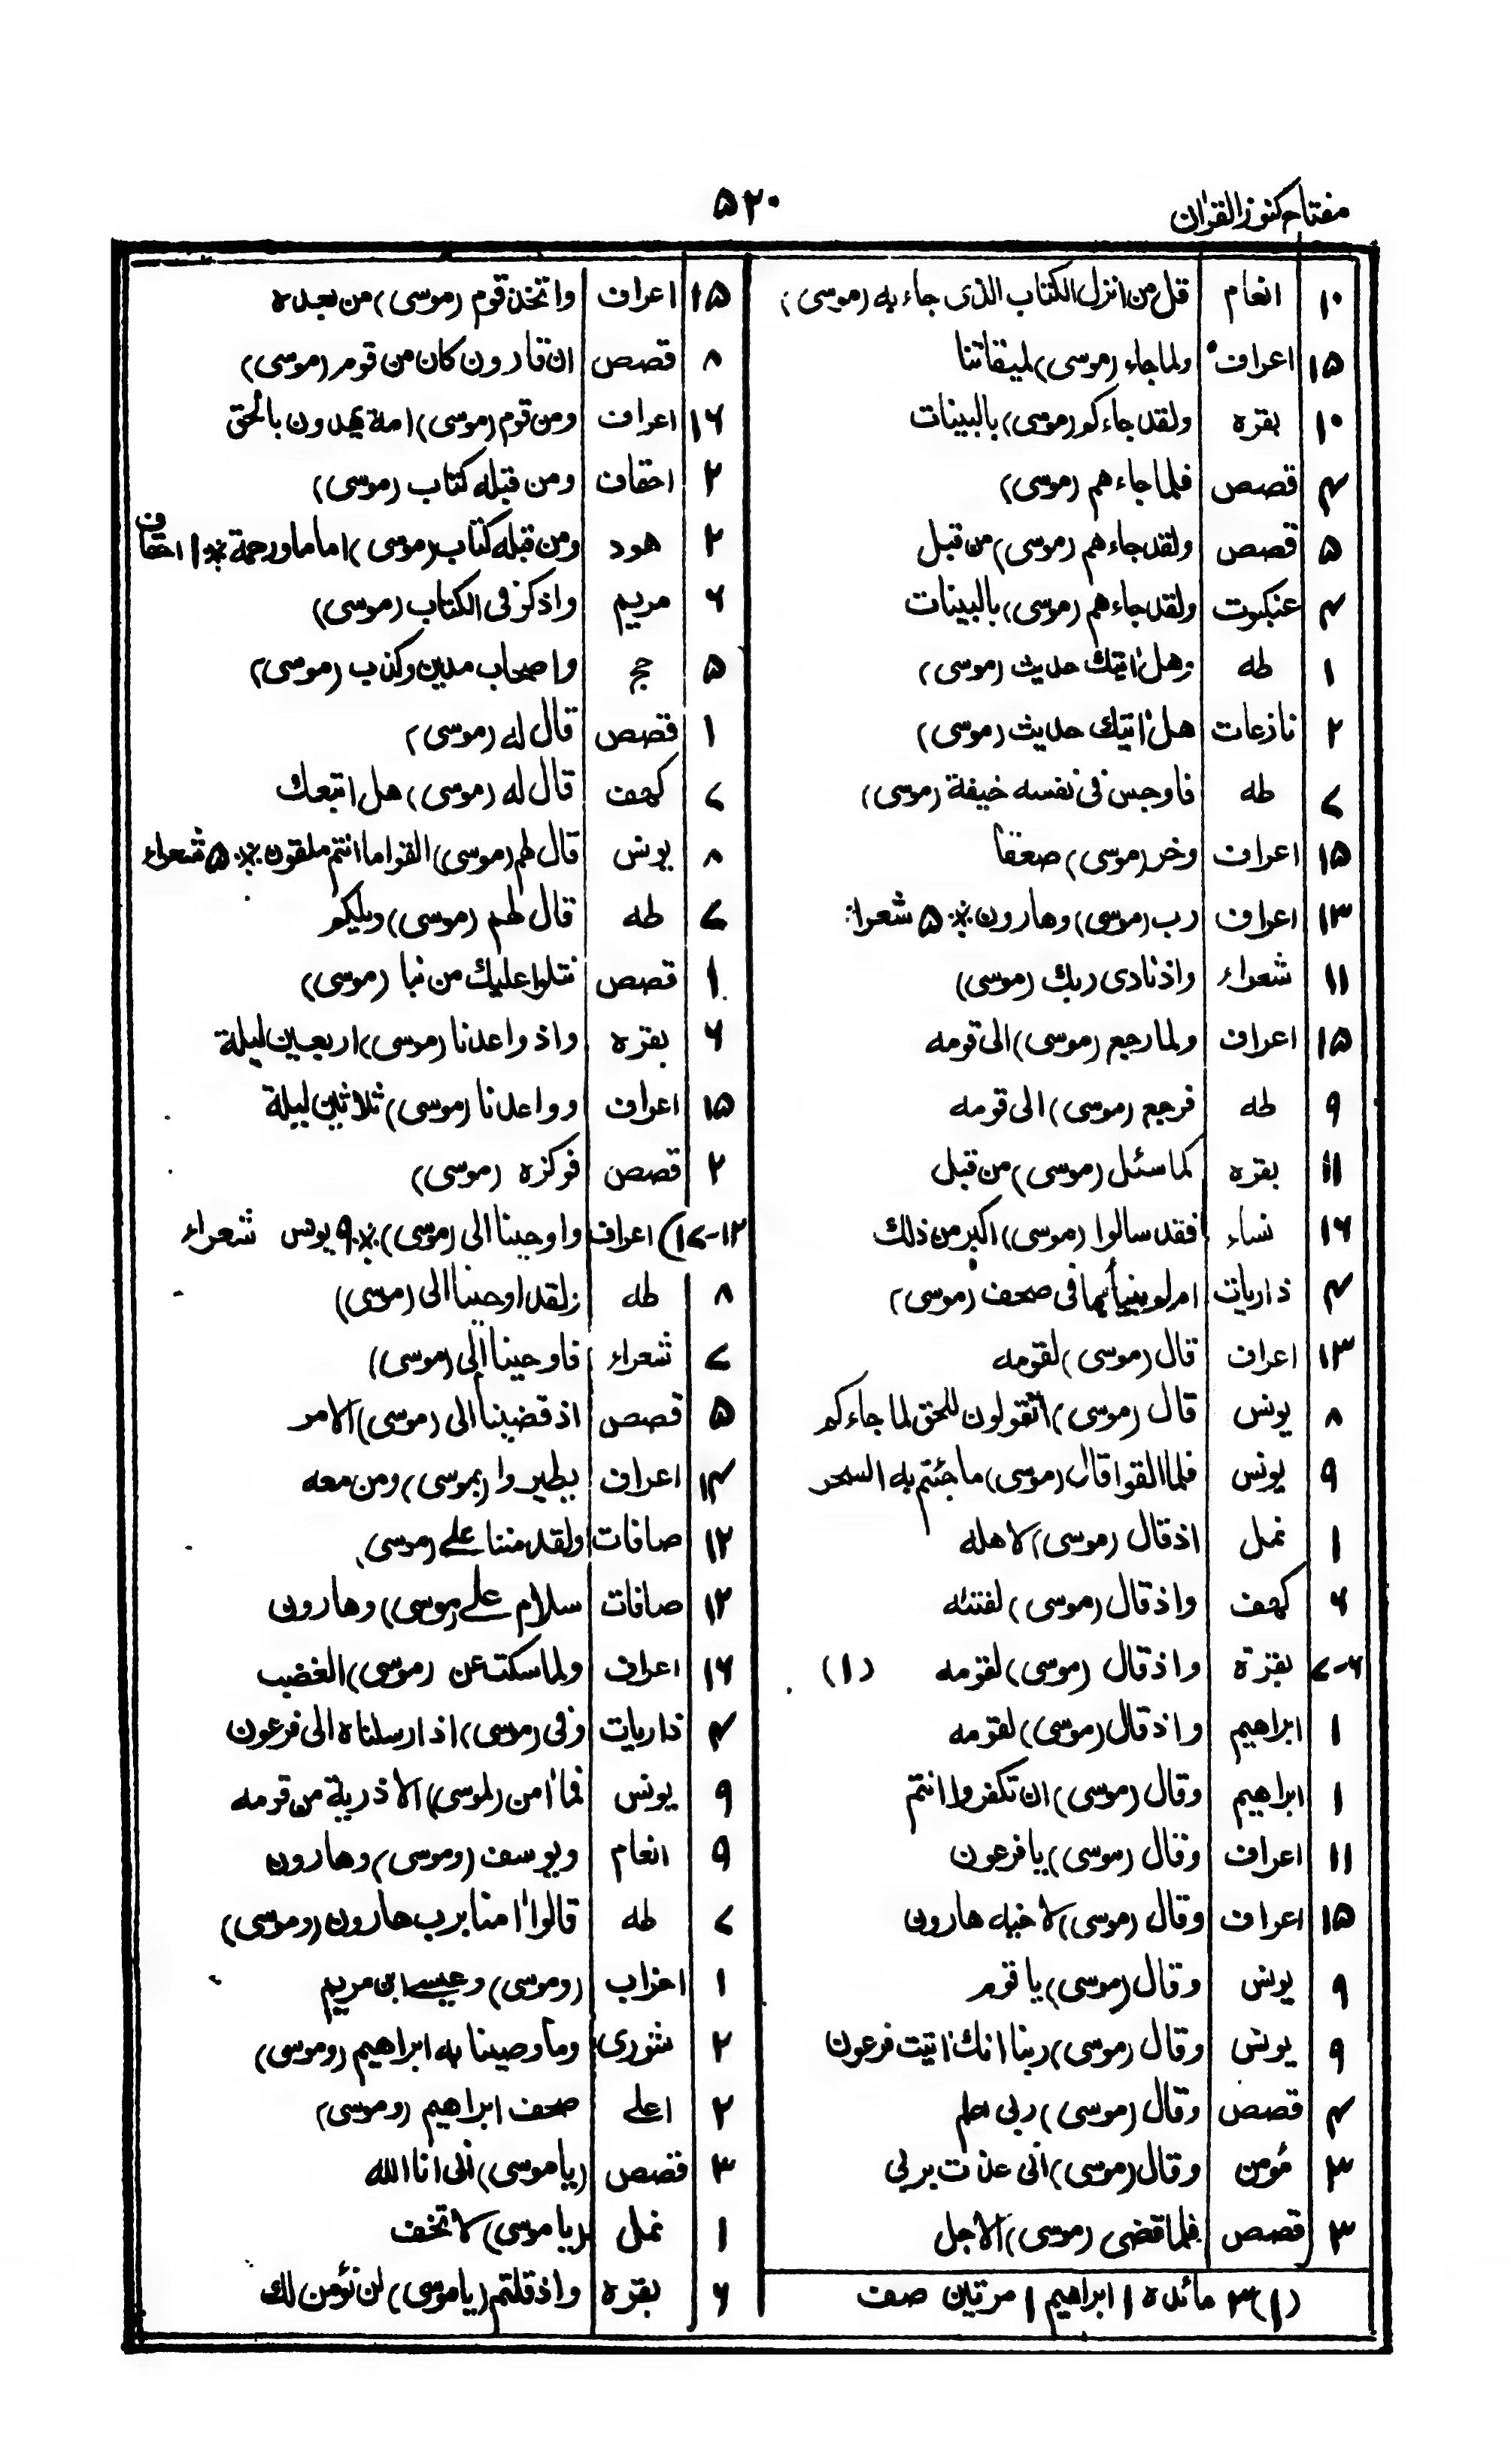 مفتاح كنوز القران
۵۲۰
۱۰ انعام قل من انزل الكتاب الذى جاء به (موسى)
۱۵ اعراف ولما جاء (موسى) لميقاتنا
۱۰ بقره ولقد جاءكم (موسى) بالبينات
۴ قصص فلما جاءهم (موسى)
۵ قصص ولقد جاءهم (موسى) من قبل
۴ عنكبوت ولقد جاءهم (موسى) بالبينات
۱ طه وهل اتيك حديث (موسى)
۲ نازعات هل اتيك حديث (موسى)
۷ طه فاوجس فى نفسه خيفة (موسى)
۱۵ اعراف وخر (موسى) صعقا
۱۳ اعراف رب (موسى) وهارون ※ ۵ شعراء
۱۱ شعراء واذ نادى ربك (موسى)
۱۵ اعراف ولما رجع (موسى) الى قومه
۹ طه فرجع (موسى) الى قومه
۱۱ بقره كما سئل (موسى) من قبل
۱۶ نساء فقد سالوا (موسى) اكبر من ذلك
۴ ذاريات ام لم ينبأ بما فى صحف (موسى)
۱۳ اعراف قال (موسى) لقومه
۸ يونس قال (موسى) اتقولون للحق لما جاءكم
۹ يونس فلما القوا قال (موسى) ما جئتم به السحر
۱ نمل اذ قال (موسى) لاهله
۶ كهف واذ قال (موسى) لفتئه
۶-۷ بقره واذ قال (موسى) لقومه (۱)
۱ ابراهيم واذ قال (موسى) لقومه
۱ ابراهيم وقال (موسى) ان تكفروا انتم
۱۱ اعراف وقال (موسى) يا فرعون
۱۵ اعراف وقال (موسى) لاخيه هارون
۹ يونس وقال (موسى) يا قوم
۹ يونس وقال (موسى) ربنا انك اتيت فرعون
۴ قصص وقال (موسى) ربى اعلم
۳ مؤمن وقال (موسى) انى عذت بربى
۳ قصص فلما قضى (موسى) الاجل
(۱) ۳ مائده ۱ ابراهيم ۱ مرتين صف
۱۵ اعراف واتخذ قوم (موسى) من بعده
۸ قصص ان قارون كان من قوم (موسى)
۱۶ اعراف ومن قوم (موسى) امة يهدون بالحق
۲ احقاف ومن قبله كتاب (موسى)
۲ هود ومن قبله كتاب (موسى) اماما ورحمة ※ ۱ احقاف
۶ مريم واذكر فى الكتاب (موسى)
۵ حج واصحاب مدين وكذب (موسى)
۱ قصص قال له (موسى)
۷ كهف قال له (موسى) هل اتبعك
۸ يونس قال لهم (موسى) القوا ما انتم ملقون ※ ۵ شعراء
۷ طه قال لهم (موسى) ويلكم
۱ قصص نتلوا عليك من نبا (موسى)
۶ بقره واذ واعدنا (موسى) اربعين ليلة
۱۵ اعراف وواعدنا (موسى) ثلاثين ليلة
۲ قصص فوكزه (موسى)
۱۲-۱۷) اعراف واوحينا الى (موسى) ※ ۹ يونس شعراء
۸ طه ولقد اوحينا الى (موسى)
۷ شعراء فاوحينا الى (موسى)
۵ قصص اذ قضينا الى (موسى) الامر
۱۴ اعراف يطيروا (بموسى) ومن معه
۱۲ صافات ولقد مننا على (موسى)
۱۲ صافات سلام على (موسى) وهارون
۱۶ اعراف ولما سكت عن (موسى) الغضب
۴ ذاريات وفى (موسى) اذ ارسلناه الى فرعون
۹ يونس فما امن (لموسى) الا ذرية من قومه
۹ انعام ويوسف (وموسى) وهارون
۷ طه قالوا امنا برب هارون (وموسى)
۱ احزاب (وموسى) وعيسى ابن مريم
۲ شورى وما وصينا به ابراهيم (وموسى)
۲ اعلى صحف ابراهيم (وموسى)
۳ قصص (يا موسى) انى انا الله
۱ نمل (يا موسى) لا تخف
۶ بقره واذ قلتم (يا موسى) لن نؤمن لك